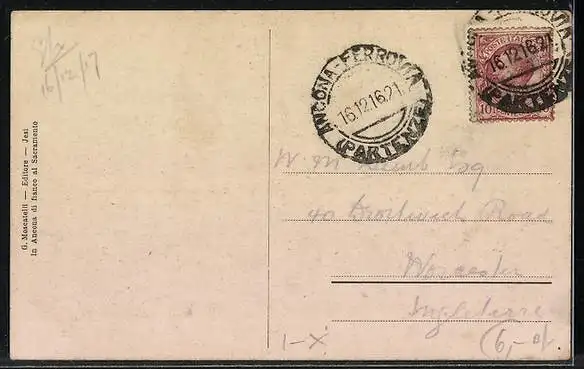 16/12/17
G. Moscatelli — Editore — Jesi
In Ancona di fianco al Sacramento
ANCONA-FERROVIA
16.12.16.21
(PARTENZE)
ANCONA-FERROVIA
16.12.16.21
(PARTENZE)
POSTE ITALIANE
10
W. M. Esq
40 Droitwich Road
Worcester
Ingleterre
1-X
6,-